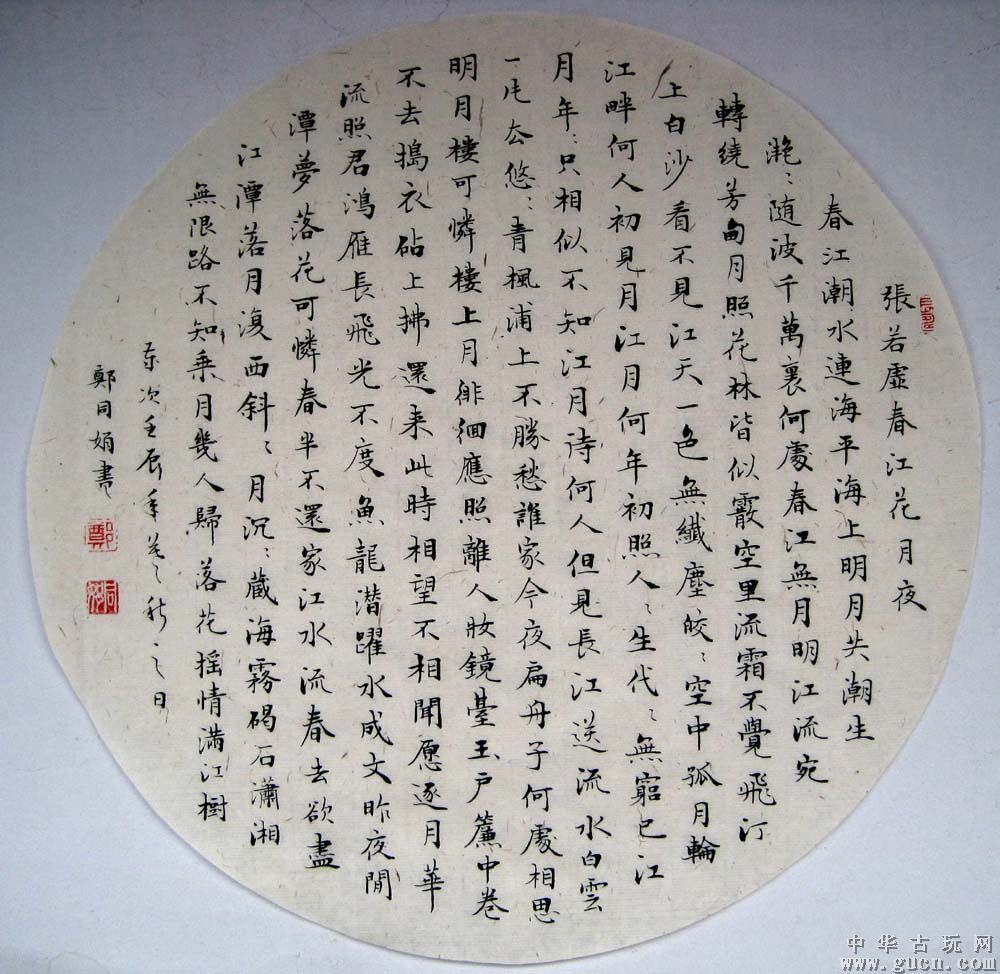 張若虛春江花月夜
春江潮水連海平海上明月共潮生
灔〻随波千萬裏何處春江無月明江流宛
轉繞芳甸月照花林皆似霰空里流霜不覺飛汀
上白沙看不見江天一色無纖塵皎〻空中孤月輪
江畔何人初見月江月何年初照人〻生代〻無窮已江
月年〻只相似不知江月待何人但見長江送流水白雲
一片去悠〻青楓浦上不勝愁誰家今夜扁舟子何處相思
明月樓可憐樓上月徘徊應照離人妝鏡臺玉戶簾中卷
不去搗衣砧上拂還来此時相望不相聞愿逐月華
流照君鴻雁長飛光不度魚龍潜躍水成文昨夜閒
潭夢落花可憐春半不還家江水流春去欲盡
江潭落月復西斜〻月沉〻藏海霧碣石瀟湘
無限路不知乘月幾人歸落花搖情满江樹
次壬辰年秋之日
鄭同娟書
中华古玩网
www.gucn.com